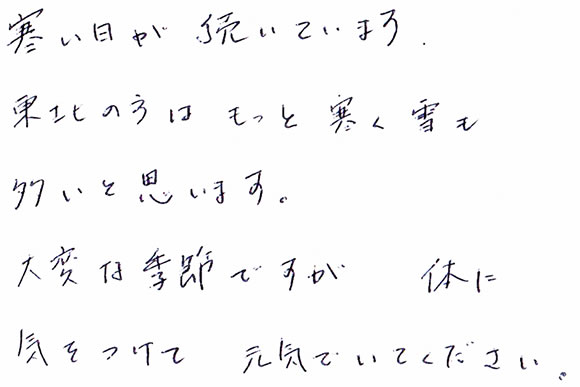 寒い日が 続いています.
東北の方は もっと 寒く 雪も
多いと 思います。
大変な季節ですが 体に
気をつけて 元気でいてください。